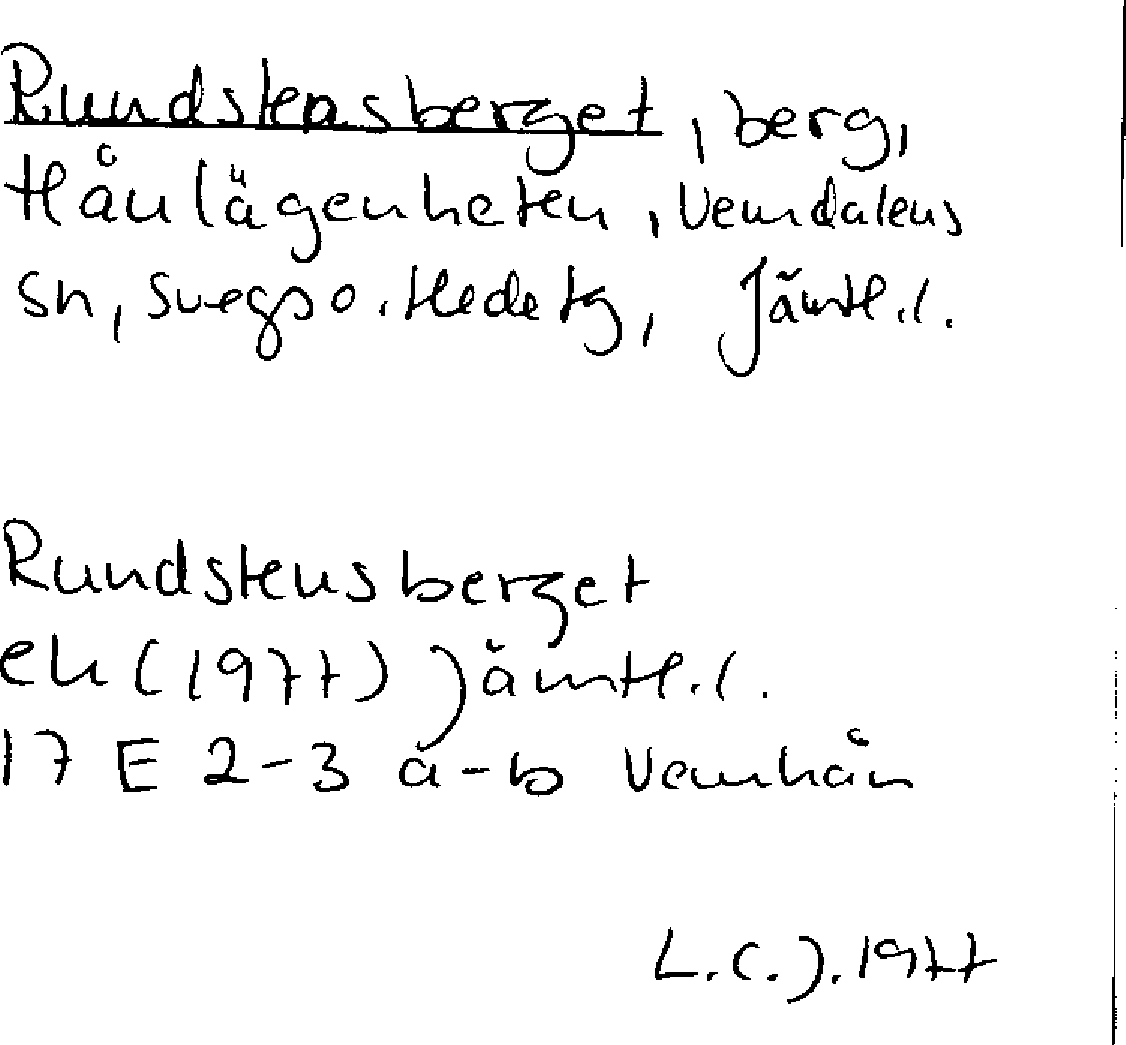 Rundstensberget, berg,
Hånlägenheten, Vemdalens
sn, Svegs o. Hede tg, Jämtl.l.
Rundstensberget
ek (1977) Jämtl.l.
17 E 2-3 a-b Vemhån
L.C.J. 1977